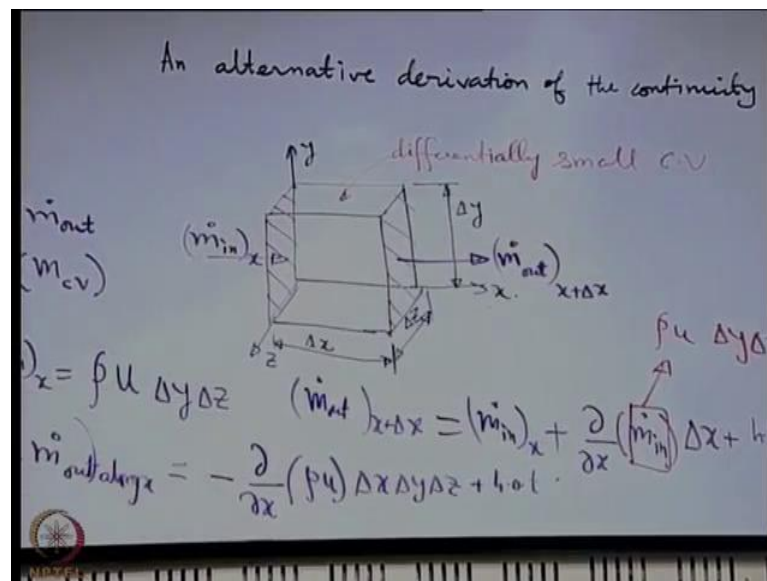 An alternative derivation of the continuity
y
differentially small C.V
ṁout
(m_cv)
(ṁin)x
Δy
(ṁout)x+Δx
x.
Δx
z
ρu Δy
)x = ρu Δy Δz
(ṁout)x+Δx = (ṁin)x + ∂/∂x (ṁin) Δx + h
ṁout)along x = - ∂/∂x (ρu) Δx Δy Δz + h.o.t.
NPTEL